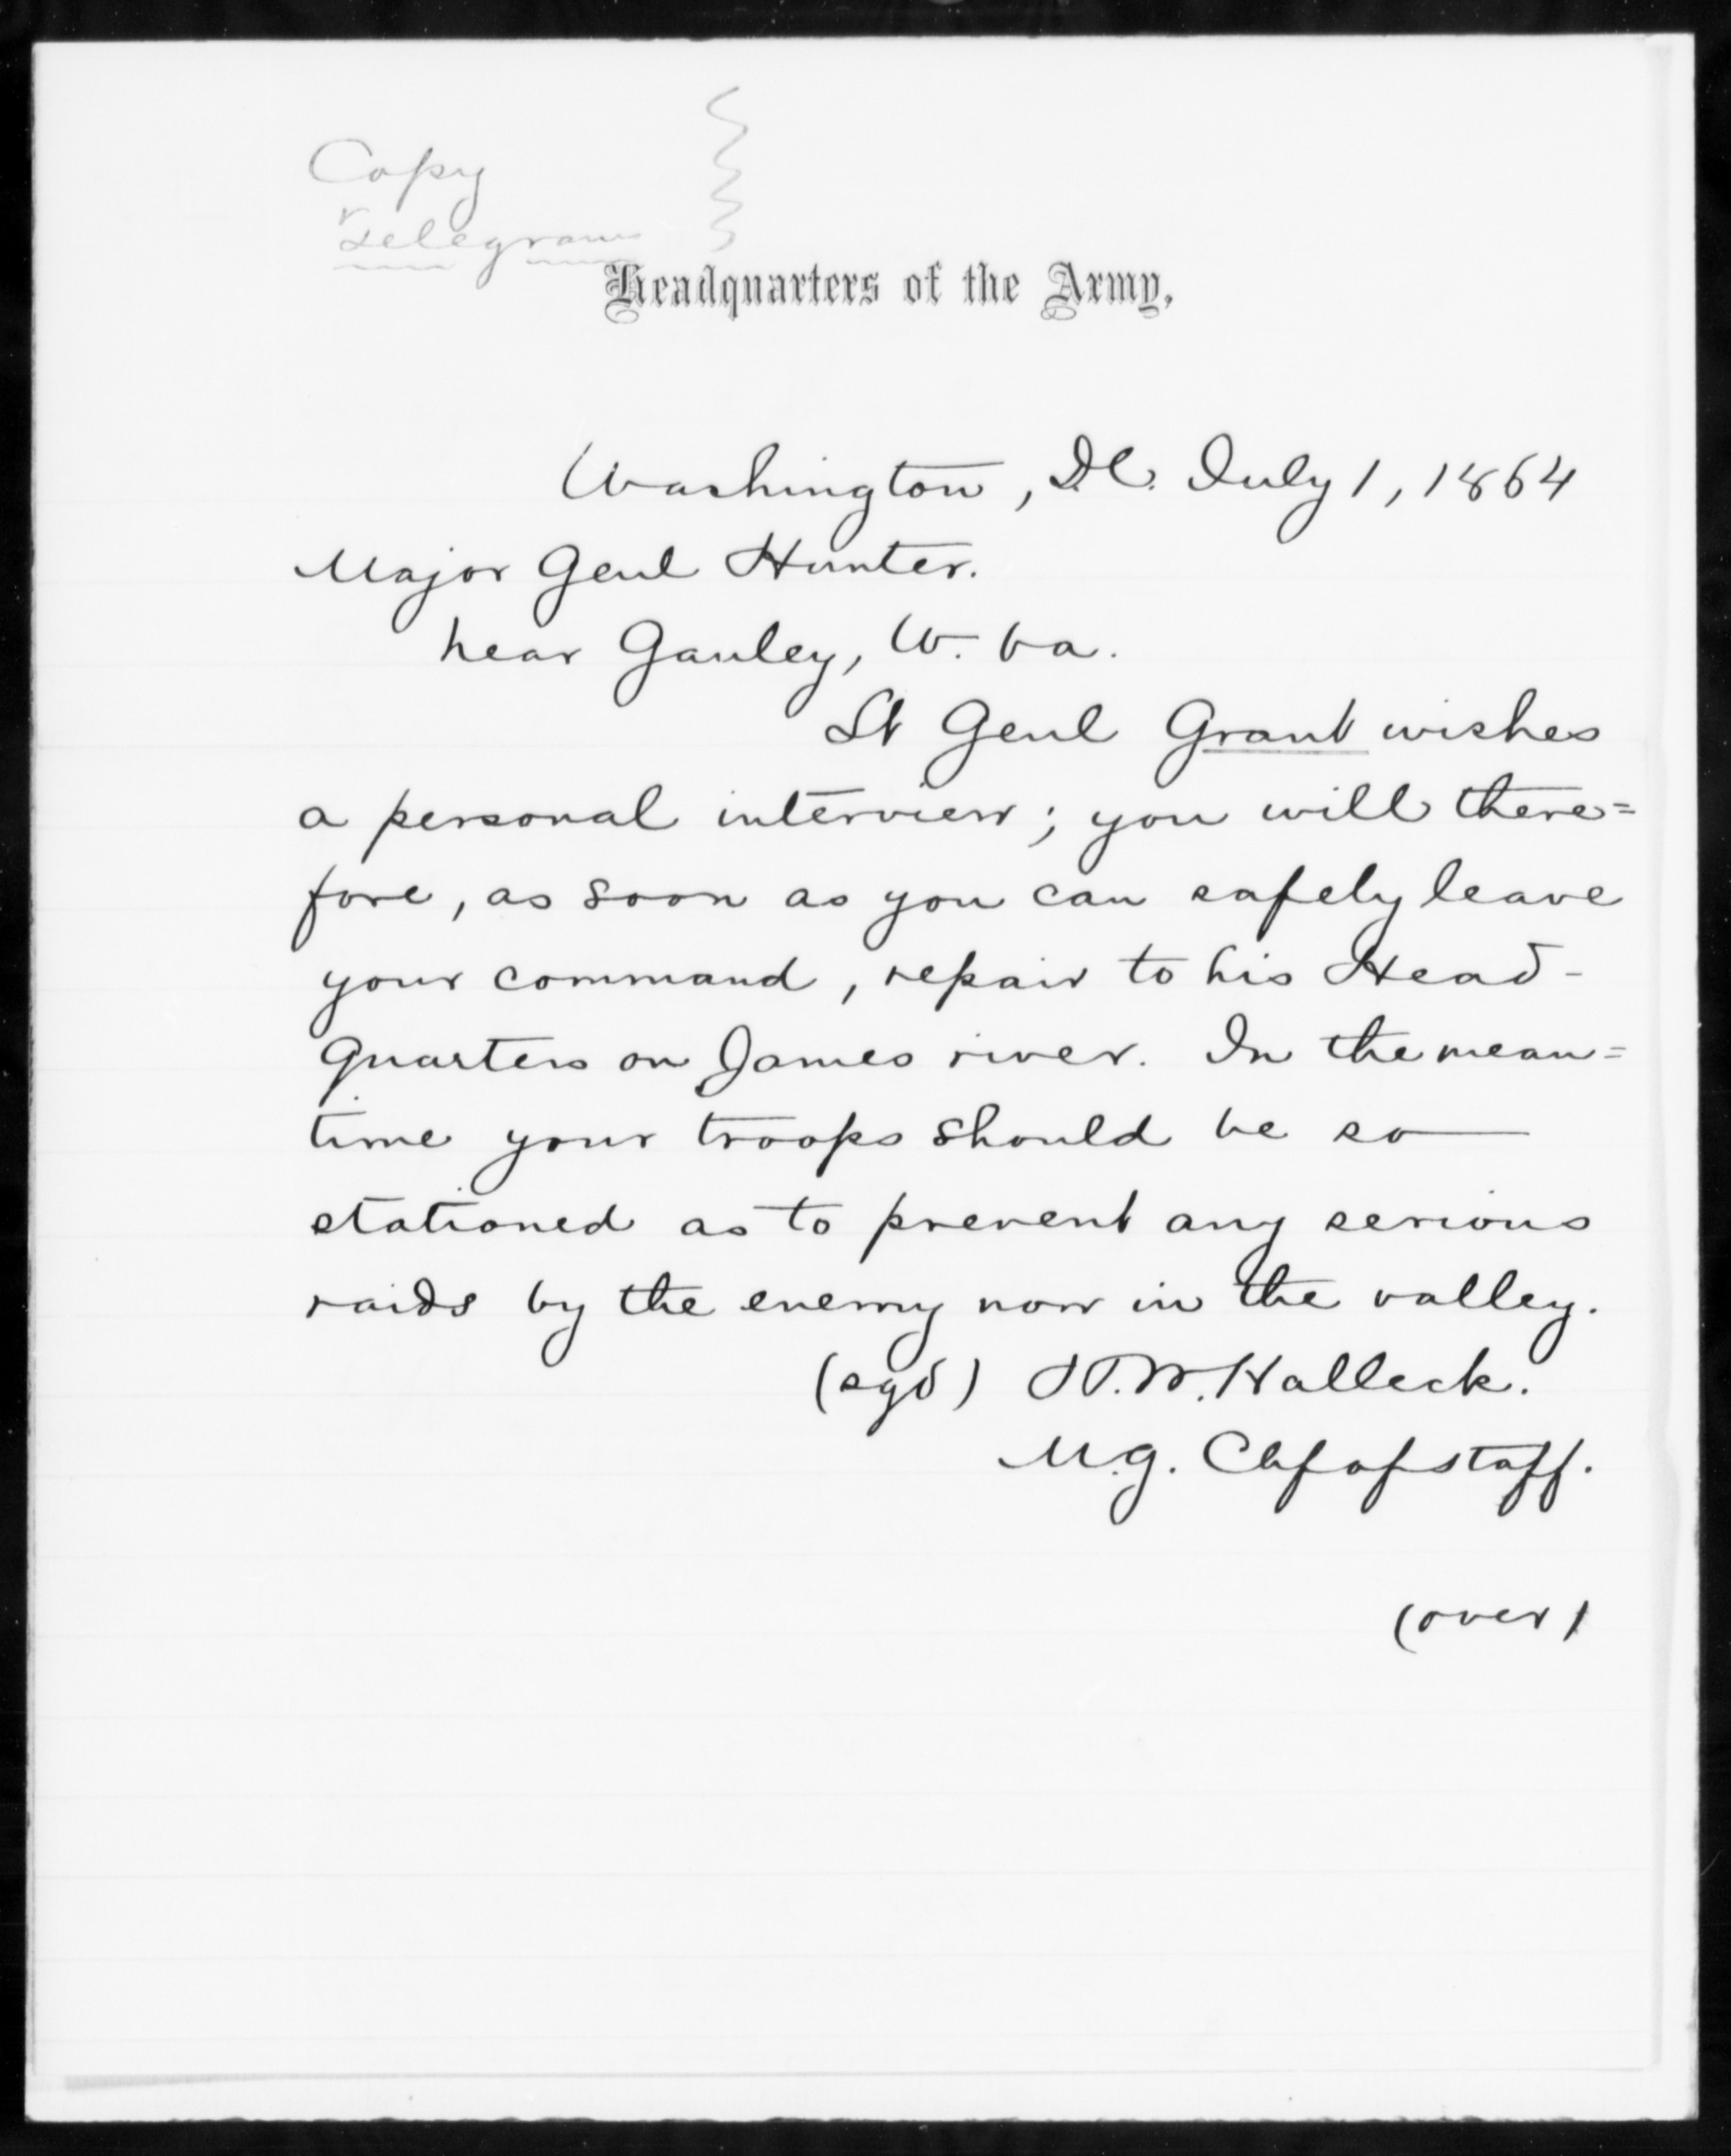 Copy
Telegram
Headquarters of the Army,
Washington, D.C. July 1, 1864
Major Genl Hunter.
near Gauley, W. Va.
Lt Genl Grant wishes
a personal interview; you will there=
fore, as soon as you can safely leave
your command, repair to his Head-
Quarters on James river. In the mean=
time your troops should be so
stationed as to prevent any serious
raids by the enemy now in the valley.
(sgd) H.W. Halleck.
M.G. Chf of staff.
(over)